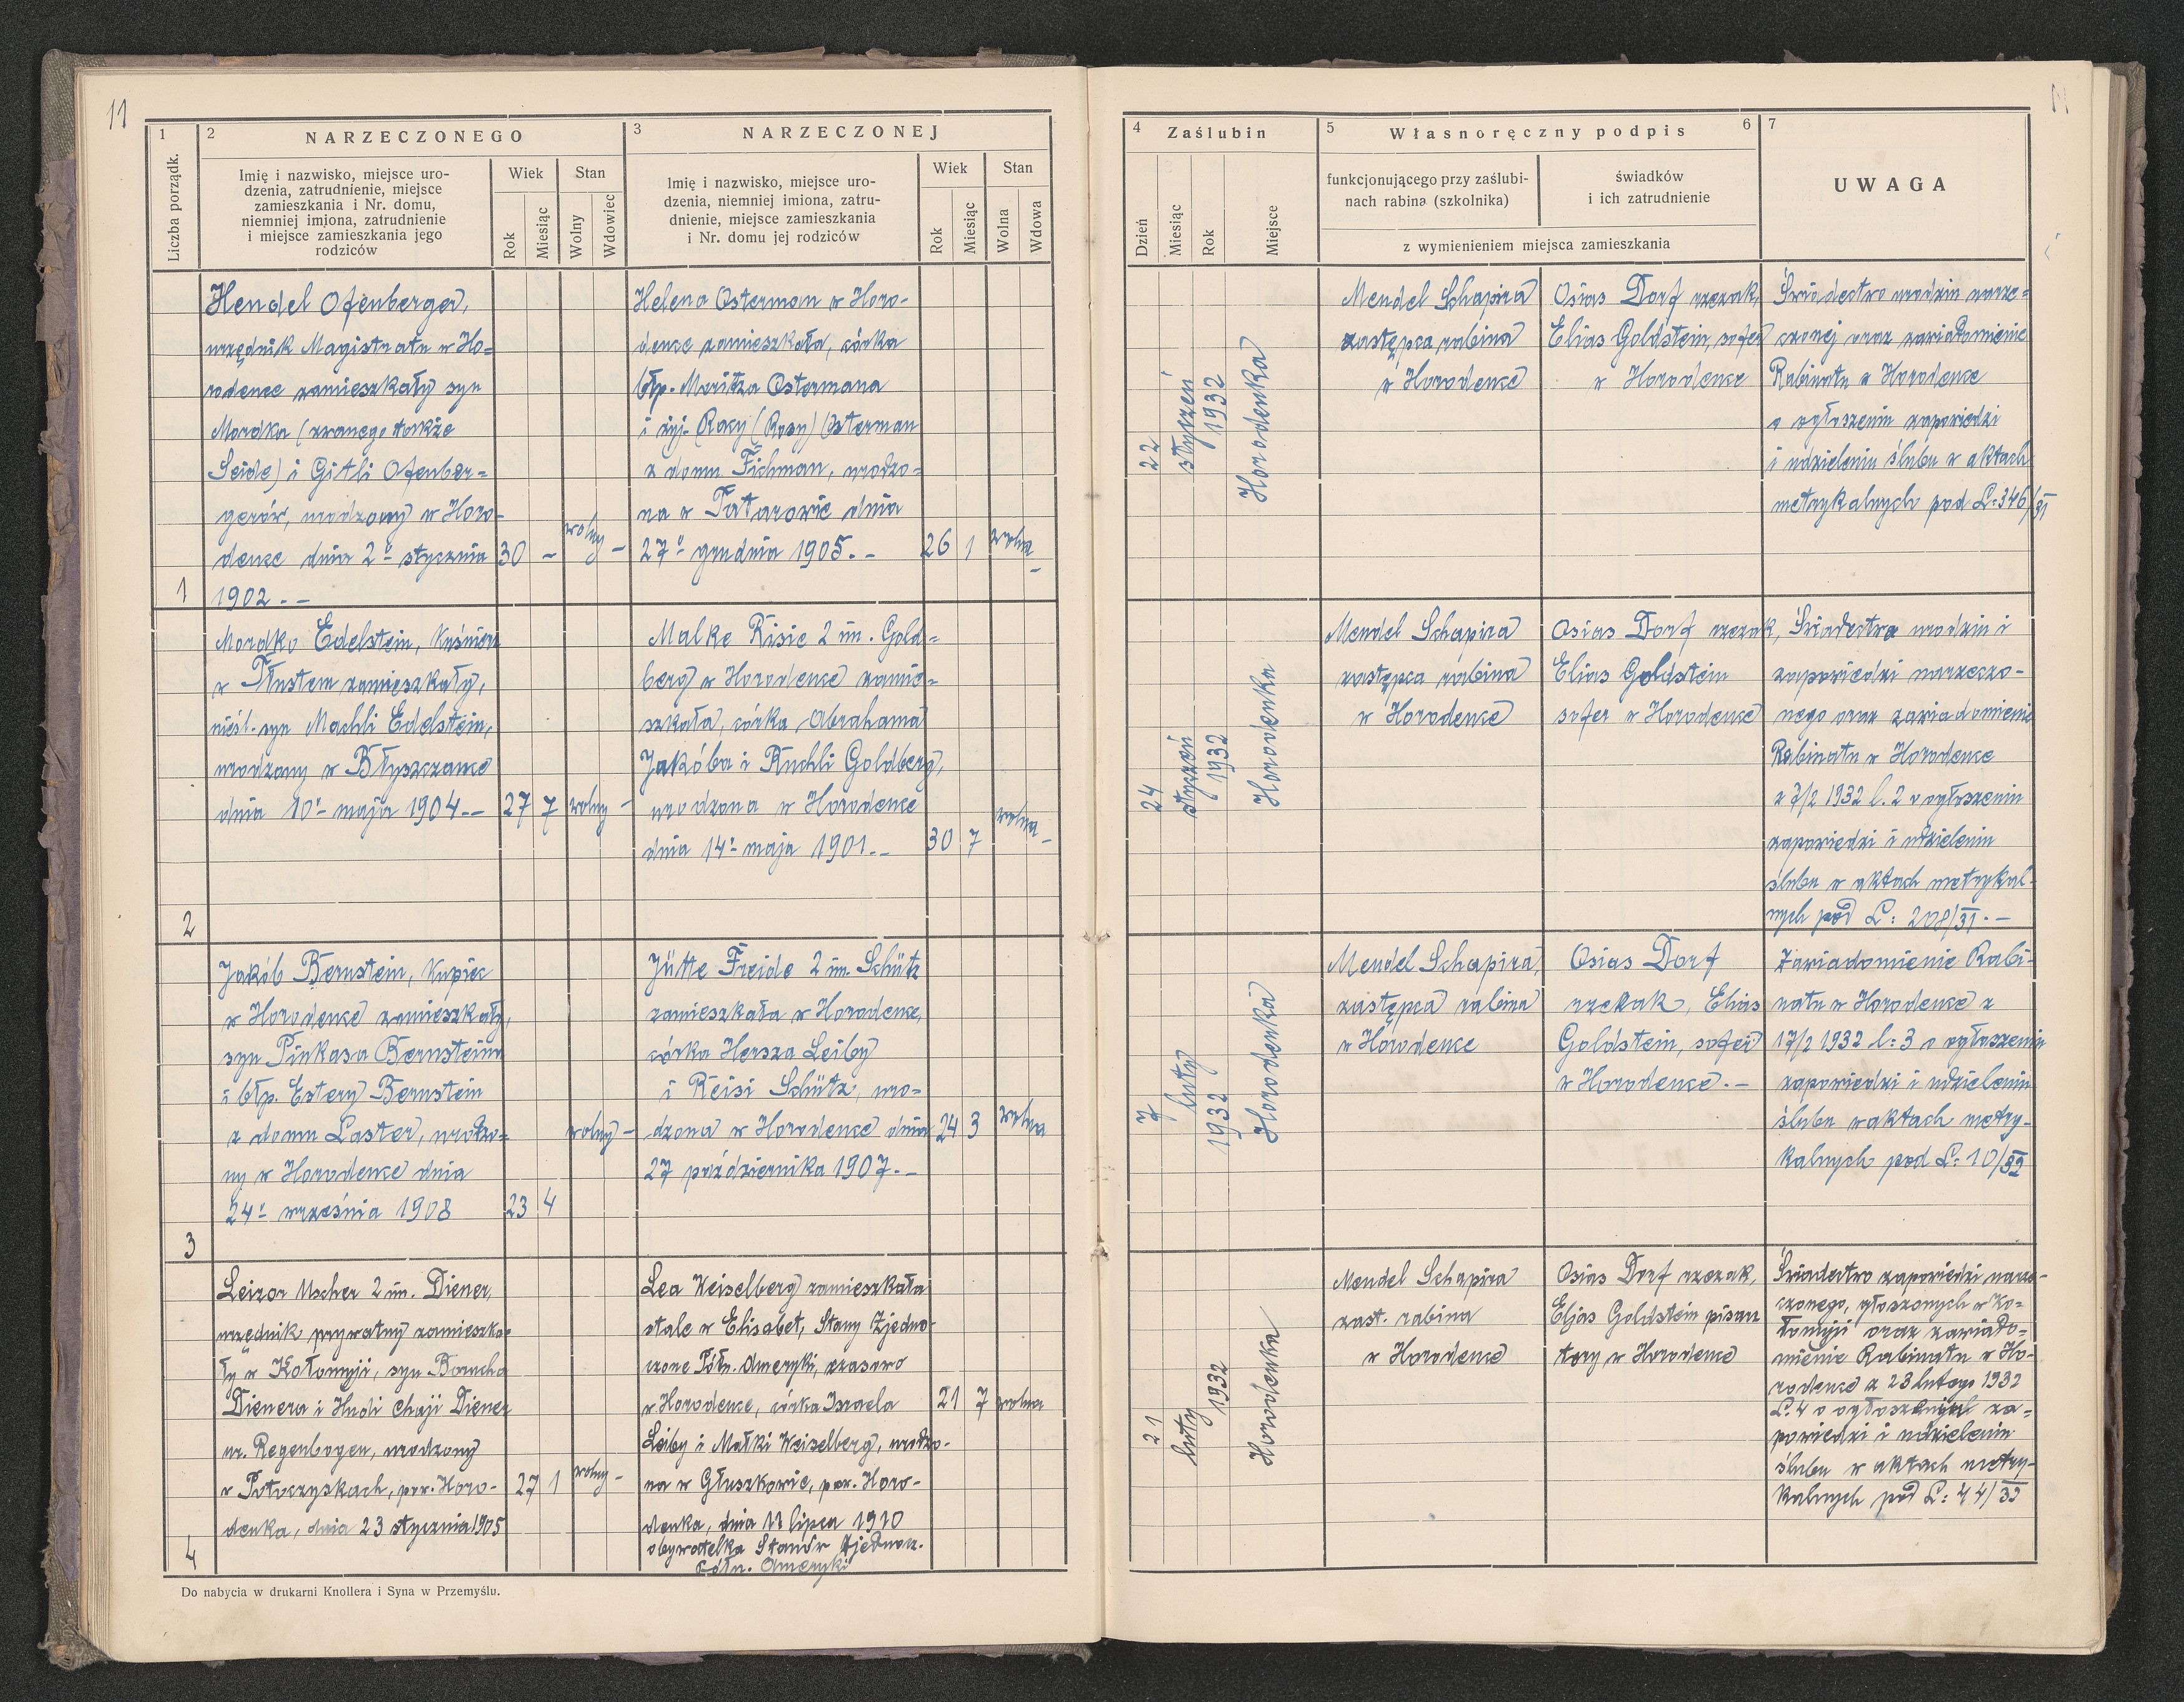 11
1
2
NARZECZONEGO
3
NARZECZONEJ
Liczba porządk.
Imię i nazwisko, miejsce uro-
dzenia, zatrudnienie, miejsce
zamieszkania i Nr. domu,
niemniej imjona, zatrudnienie
i miejsce zamieszkania jego
rodziców
Wiek
Stan
Rok
Miesiąc
Wolny
Wdowiec
Imię i nazwisko, miejsce uro-
dzenia, niemniej imiona, zatru-
dnienie, miejsce zamieszkania
i Nr. domu jej rodziców
Wiek
Stan
Rok
Miesiąc
Wolna
Wdowa
4
Zaślubin
5
Własnoręczny podpis
6
7
Dzień
Miesiąc
Rok
Miejsce
funkcjonującego przy zaślubi-
nach rabina (szkolnika)
świadków
i ich zatrudnienie
z wymienieniem miejsca zamieszkania
UWAGA
1
Hendel Ofenberger,
urzędnik Magistratu w Ho=
rodence zamieszkały syn
Mordka (zwanego także
Seide) i Gitli Ofenber=
gerów, urodzony w Horo-
dence dnia 2º stycznia
1902.-
30 -
wolny -
Helena Osterman w Horo-
dence zamieszkała, córka
błp. Moritza Ostermana
i żyj. Rozy (Rosy) Osterman
z domu Fichman, urodzo=
na w Tatarowie dnia
27º grudnia 1905.-
26 1
wolna -
22
styczeń
1932
Horodenka
Mendel Schapira
zastępca rabina
w Horodence
Osias Dorf rzezak,
Elias Goldstein, sofer
w Horodence
Świadectwo urodzin narze=
czonej oraz zawiadomienie
Rabinatu w Horodence
o ogłoszeniu zapowiedzi
i udzieleniu ślubu w aktach
metrykalnych pod L: 346/31
2
Mordko Edelstein, kuśnierz
w Tłustem zamieszkały,
nieśl. syn Machli Edelstein,
urodzony w Błyszczance
dnia 10º maja 1904.-
27 7 wolny -
Malke Risie 2 im. Gold=
berg w Horodence zamie=
szkała, córka Abrahama
Jakóba i Ruchli Goldberg,
urodzona w Horodence
dnia 14º maja 1901.-
30 7
wolna -
24
styczeń
1932
Horodenka
Mendel Schapira
zastępca rabina
w Horodence
Osias Dorf rzezak,
Elias Goldstein
sofer w Horodence
Świadectwa urodzin i
zapowiedzi narzeczo-
nego oraz zawiadomienie
Rabinatu w Horodence
z 7/2 1932 l. 2 o ogłoszeniu
zapowiedzi i udzieleniu
ślubu w aktach metrykal-
nych pod L: 208/31.-
3
Jakób Bernstein, kupiec
w Horodence zamieszkały,
syn Pinkasa Bernsteina
i błp. Estery Bernstein
z domu Laster, urodzo=
ny w Horodence dnia
24º września 1908
23 4
wolny -
Jütte Freide 2 im. Schütz
zamieszkała w Horodence,
córka Hersza Leiby
i Reisi Schütz, uro=
dzona w Horodence dnia
27 października 1907.-
24 3
wolna
7
luty
1932
Horodenka
Mendel Schapira,
zastępca rabina
w Horodence
Osias Dorf
rzezak, Elias
Goldstein, sofer
w Horodence.-
Zawiadomienie Rabi-
natu w Horodence z
17/2 1932 l: 3 o ogłoszeniu
zapowiedzi i udzieleniu
ślubu w aktach metry-
kalnych pod L: 10/32
4
Leizor Uscher 2 im. Diener,
urzędnik prywatny zamieszka-
ły w Kołomyji, syn Borucha
Dienera i Hudi Chaji Diener
ur. Regenbogen, urodzony
w Potoczyskach, pow. Horo-
denka, dnia 23 stycznia 1905
27 1
wolny -
Lea Weiselberg zamieszkała
stale w Elisabet, Stany Zjedno-
czone Półn. Ameryki, czasowo
w Horodence, córka Israela
Leiby i Małki Weiselberg, urodzo-
na w Głuszkowie, pow. Horo-
denka, dnia 11 lipca 1910
obywatelka Stanów Zjednocz.
Półn. Ameryki
21 7 wolna
21
luty
1932
Horodenka
Mendel Schapira
zast. rabina
w Horodence
Osias Dorf rzezak,
Eljas Goldstein pisarz
tory w Horodence
Świadectwo zapowiedzi narze-
czonego, głoszonych w Ko=
łomyji oraz zawiado=
mienie Rabinatu w Ho-
rodence z 23 lutego 1932
L. 4 o ogłoszeniu za=
powiedzi i udzieleniu
ślubu w aktach metry-
kalnych pod L: 44/32
Do nabycia w drukarni Knollera i Syna w Przemyślu.